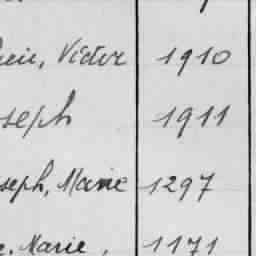 Victor 1910
seph 1911
seph, Marie 1297
Marie, 1171